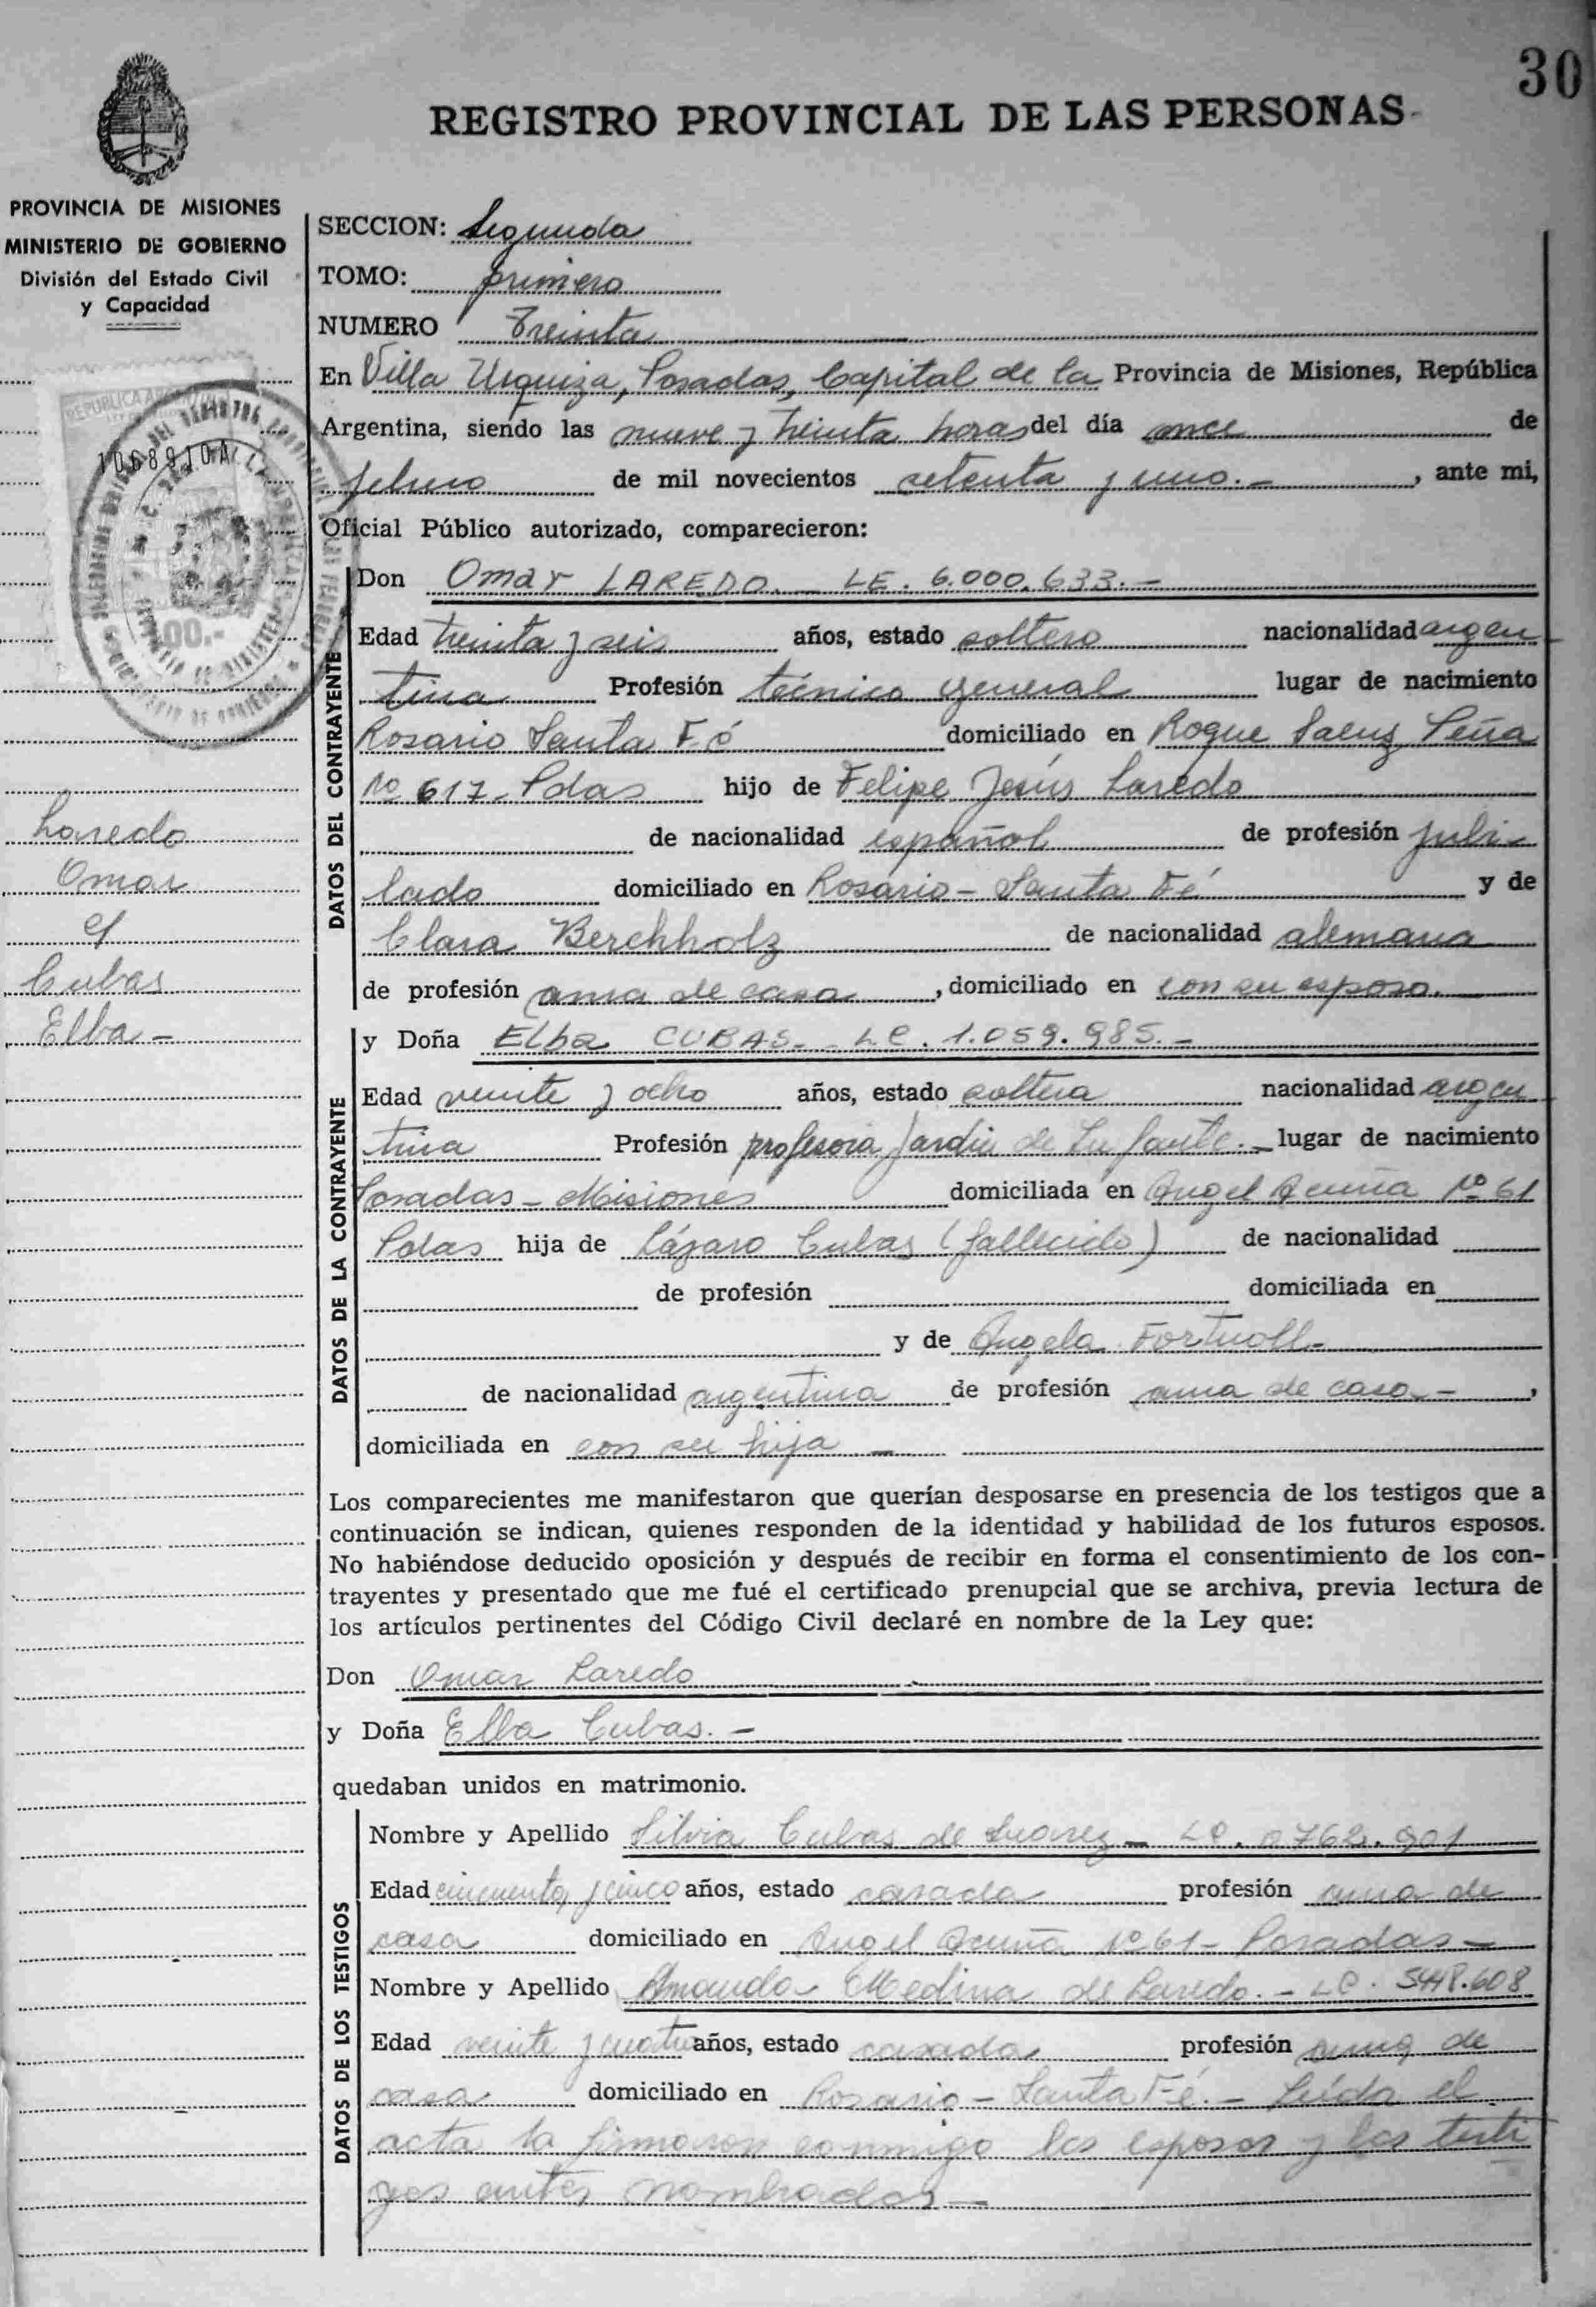 30
REGISTRO PROVINCIAL DE LAS PERSONAS
PROVINCIA DE MISIONES
MINISTERIO DE GOBIERNO
División del Estado Civil
y Capacidad
SECCION: Segunda
TOMO: primero
NUMERO Treinta
En Villa Urquiza, Posadas, Capital de la Provincia de Misiones, República
Argentina, siendo las nueve y treinta horas del día once de
febrero de mil novecientos setenta y uno.- , ante mi,
Oficial Público autorizado, comparecieron:
REPUBLICA
1068910A
00.-
Laredo
Omar
y
Cubas
Elba -
DATOS DEL CONTRAYENTE
Don Omar LAREDO. - LE. 6.000.633.-
Edad treinta y seis años, estado soltero nacionalidad argen
tina Profesión técnico general lugar de nacimiento
Rosario Santa Fé domiciliado en Roque Saenz Peña
Nº 617. Pdas hijo de Felipe Jesús Laredo
de nacionalidad español de profesión jubi-
lado domiciliado en Rosario - Santa Fé y de
Clara Berchholz de nacionalidad alemana
de profesión ama de casa , domiciliado en con su esposo.
DATOS DE LA CONTRAYENTE
y Doña Elba CUBAS.- LC. 1.059.985.-
Edad veinte y ocho años, estado soltera nacionalidad argen
tina Profesión profesora Jardin de Infante.- lugar de nacimiento
Posadas - Misiones domiciliada en Angel Acuña Nº 61
Pdas hija de Lázaro Cubas (fallecido) de nacionalidad
de profesión domiciliada en
y de Angela
de nacionalidad argentina de profesión ama de casa - ,
domiciliada en con su hija -
Los comparecientes me manifestaron que querían desposarse en presencia de los testigos que a
continuación se indican, quienes responden de la identidad y habilidad de los futuros esposos.
No habiéndose deducido oposición y después de recibir en forma el consentimiento de los con-
trayentes y presentado que me fué el certificado prenupcial que se archiva, previa lectura de
los artículos pertinentes del Código Civil declaré en nombre de la Ley que:
Don Omar Laredo
y Doña Elba Cubas. -
quedaban unidos en matrimonio.
DATOS DE LOS TESTIGOS
Nombre y Apellido Silvia Cubas de Suarez - LC. 0762.901
Edad cincuenta y cinco años, estado casada profesión ama de
casa domiciliado en Angel Acuña Nº 61 - Posadas -
Nombre y Apellido Amanda Medina de Laredo. - LC. 5448.608
Edad veinte y cuatro años, estado casada profesión ama de
casa domiciliado en Rosario - Santa Fé. - Leída el
acta la firmaron conmigo los esposos y los testi
gos antes nombrados -